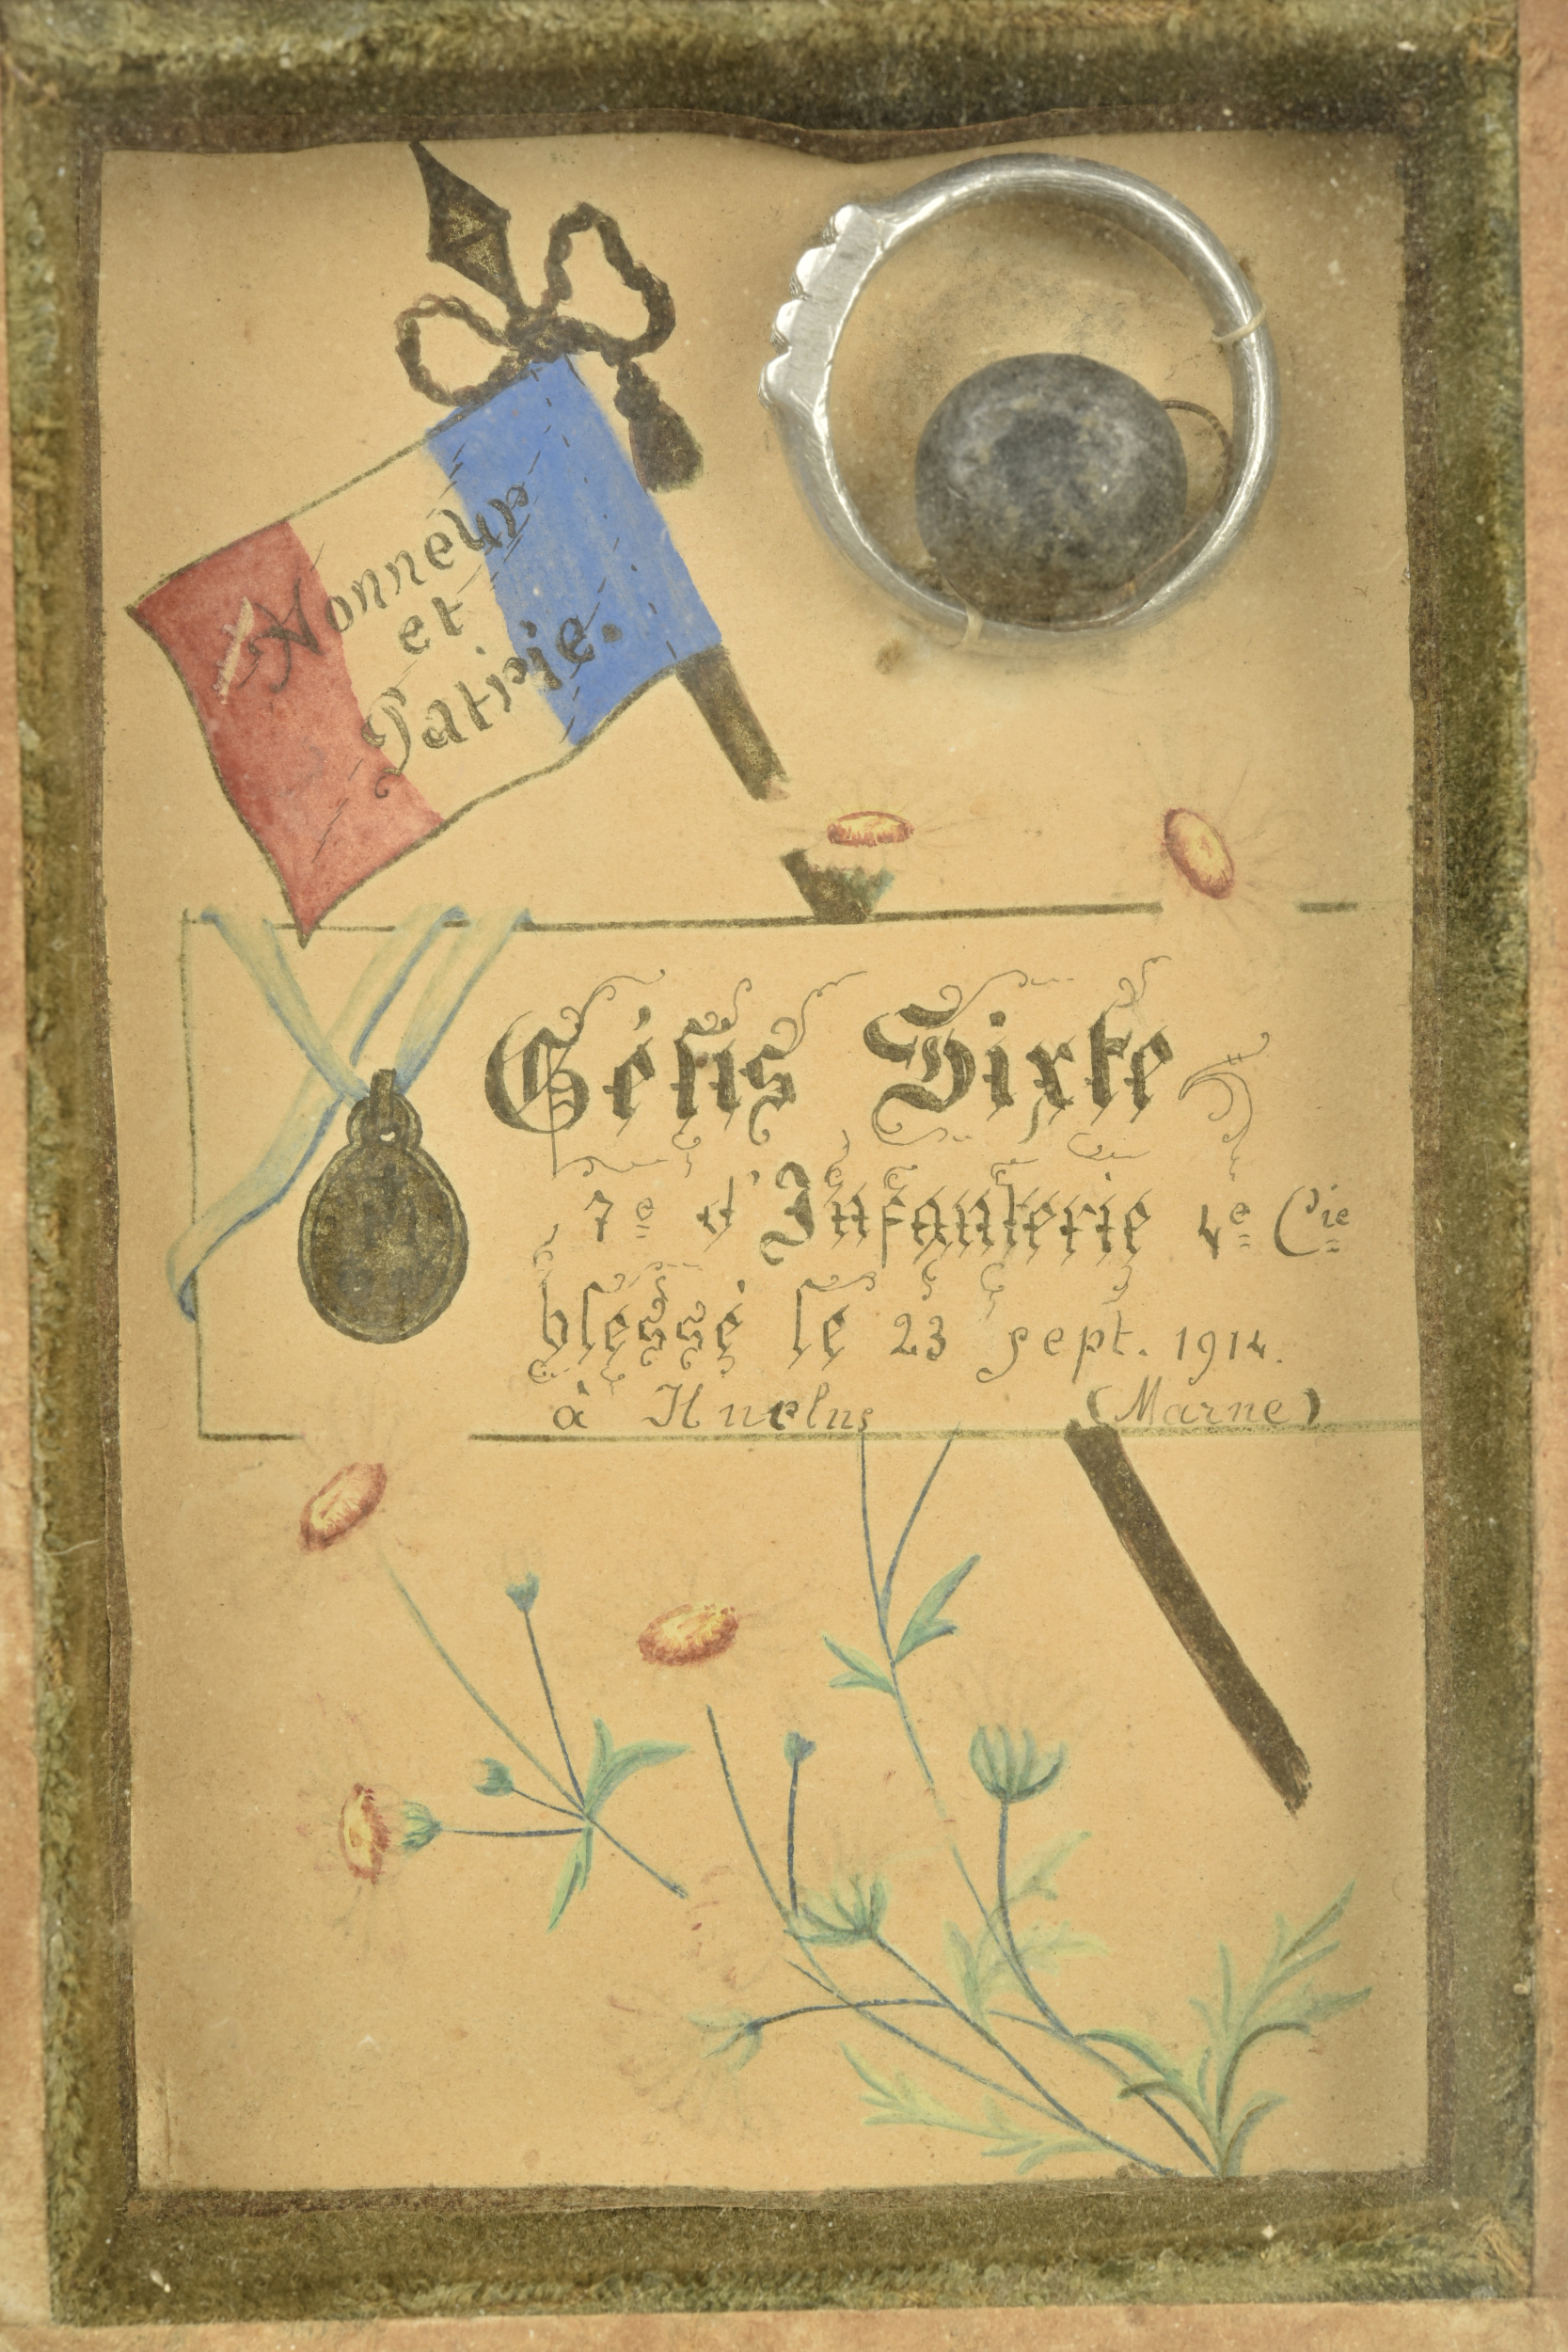 Honneur
et
Patrie.
Gélis Sixte
7e d'Infanterie 4e Cie
blessé le 23 sept. 1914.
à Hurlus (Marne)